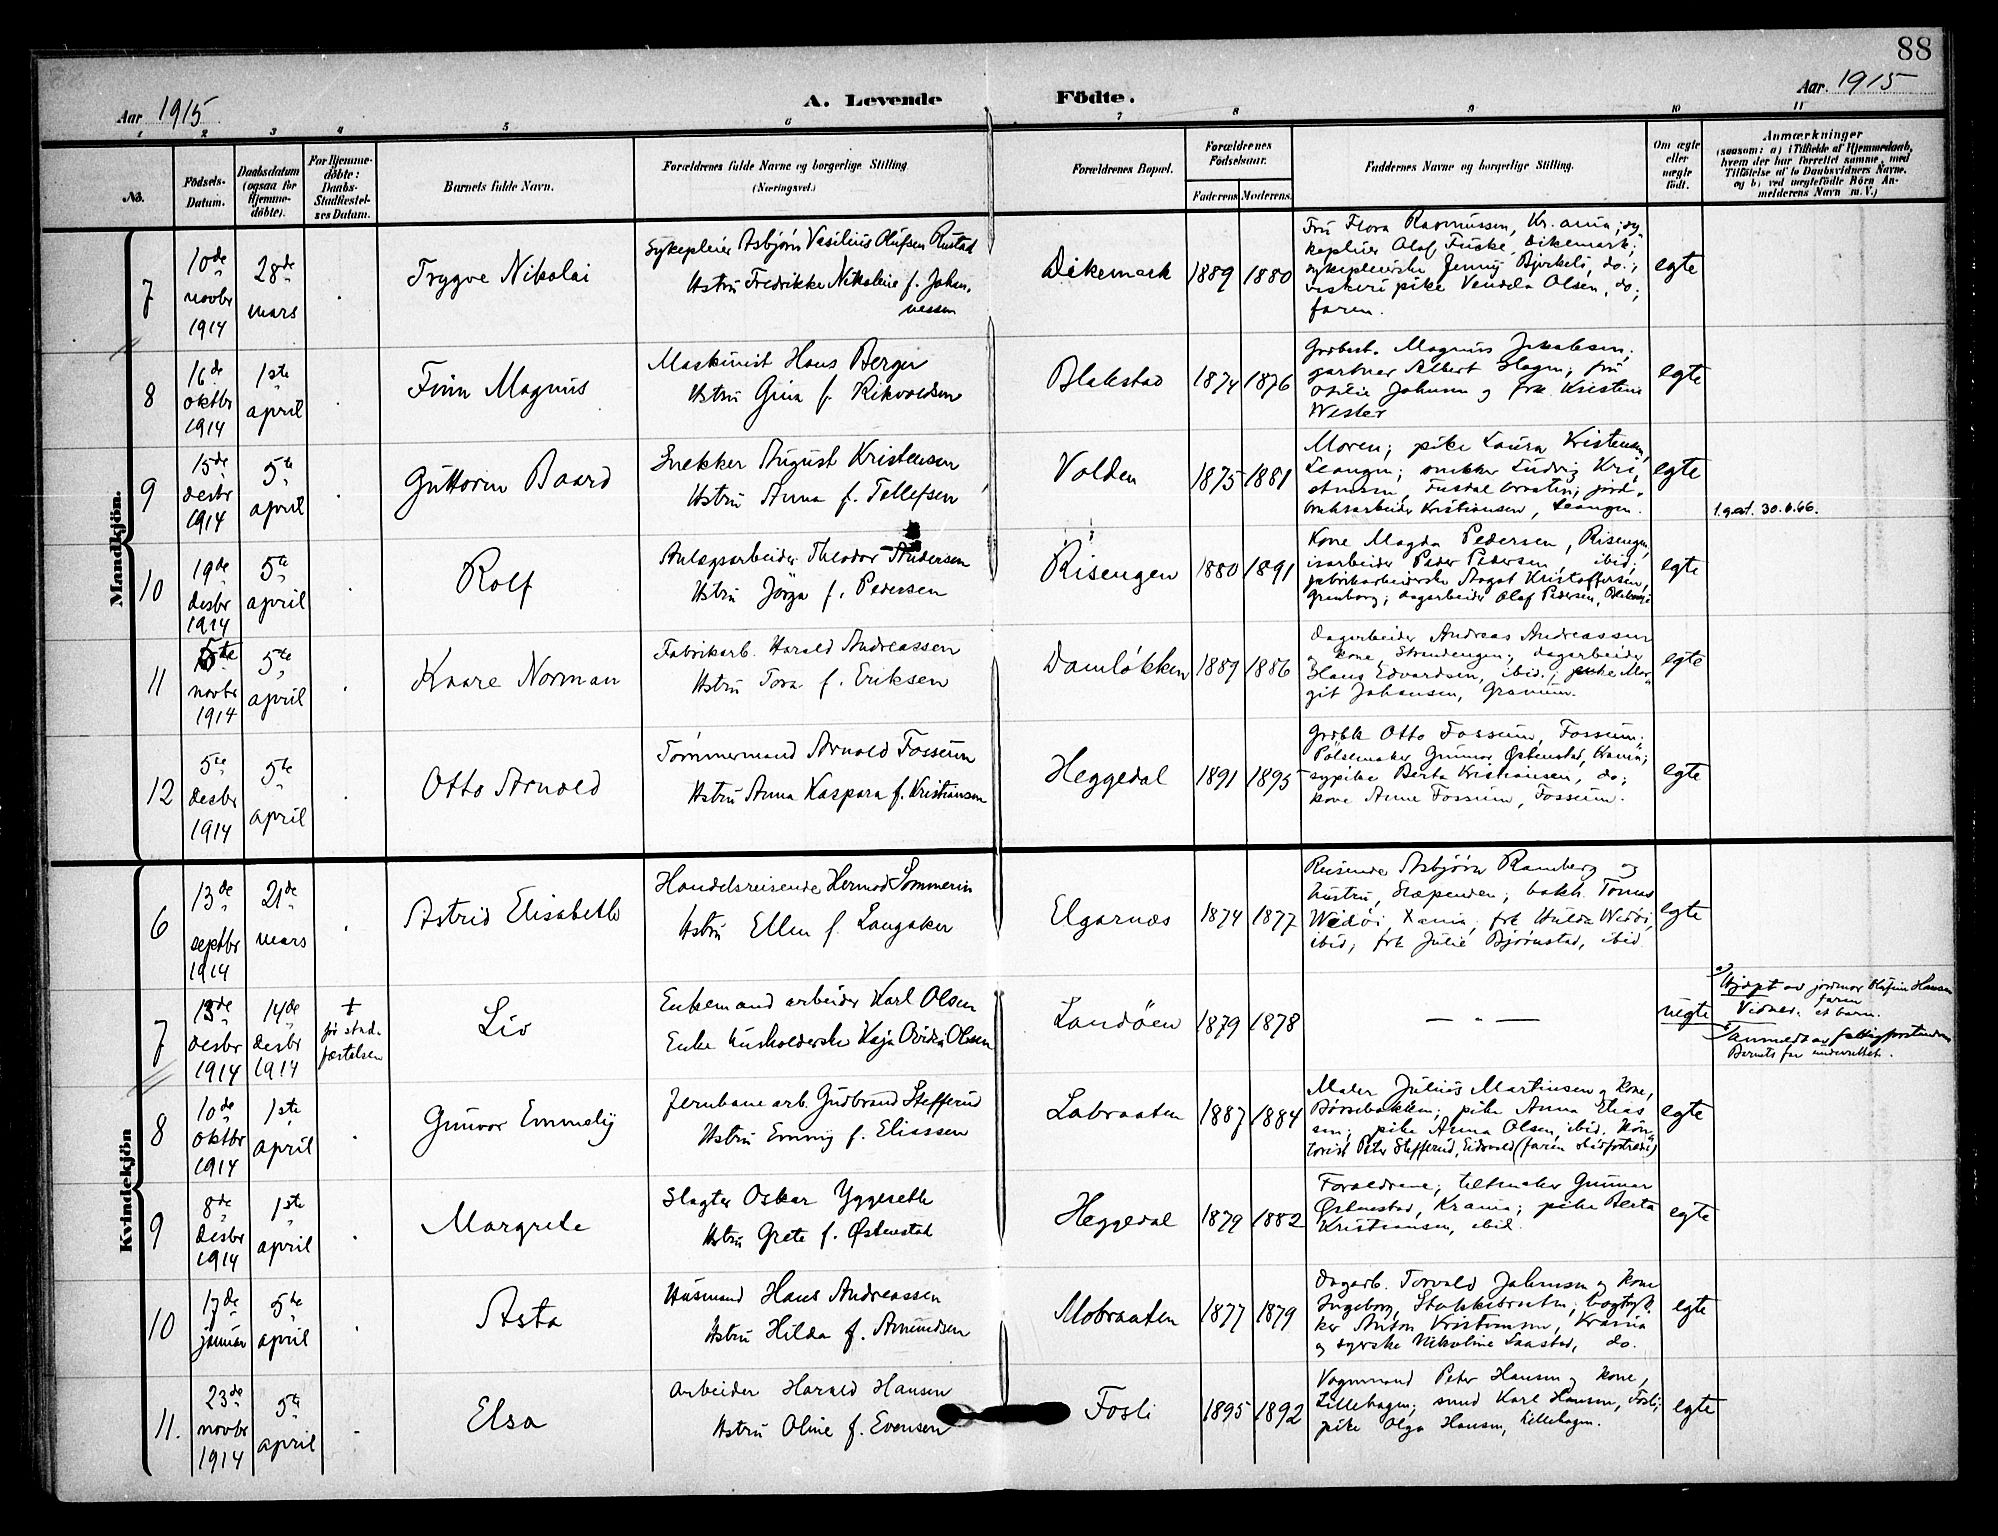 88
Aar 1915
A. Levende Födte.
Aar. 1915
1 2 3 4 5 6 7 8 9 10 11
No.
Födsels-
Datum.
Daabsdatum
(ogsaa for
Hjemme-
döbte).
For Hjemme-
döbte:
Daabs-
Stadfæstel-
ses Datum.
Barnets fulde Navn.
Forældrenes fulde Navne og borgerlige Stilling
(Næringsvei.)
Forældrenes Bopæl.
Forældrenes
Födselsaar.
Faderens Moderens.
Faddernes Navne og borgerlige Stilling.
Om ægte
eller
uægte
født.
Anmærkninger
(saasom: a) i Tilfælde af Hjemmedaab,
hvem der har forrettet samme, med
Tilføielse af to Daabsvidners Navne.
og b) ved uægtefödte Börn An-
melderens Navn m. V.)
Mandkjön.
7
10de
novbr
1914
28de
mars
Tryggve Nikolai
Sykepleier Asbjörn Vasilius Olufsen Rustad
Hstru Fredrikke Nikoleie f. Johan-
nessen
Dikemark
1889 1880
Fru Flora Rasmussen, Kr.ania; sy-
kepleier Olaf Fucke, Dikemark;
sykepleierske Jenny Bjerkeli, do.;
vaskeripike Vendla Olsen, do;
faren.
egte
8
16de
oktbr
1914
1ste
april
Finn Magnus
Maskinist Hans Berger
Hstru Gina f. Rikvoldsen
Blakstad
1874 1876
Gaardbest. Magnus Jakobsen;
gartner Albert Hagen; fru
Otilie Johnsen og frk. Kristine
Wester
egte
9
15de
desbr
1914
5te
april
Guttorm Baard
Snekker August Kristensen
Hstru Anna f. Tellefsen
Volden
1875 1881
Moren; pike Laura Kristensen,
Leangen; snekker Ludvig Kri-
stensen, Fusdal
Kristiansen, Leangen.
egte
1.gat. 30.6.66.
10
19de
desbr
1914
5te
april
Rolf
Anlægsarbeider Theodor Andersen
Hstru Jörga f. Pedersen
Risengen
1880 1891
Kone Magda Pedersen, Risengen,
isarbeider Peder Pedersen, ibid;
fabrikarbeiderske Aagot Kristoffersen,
Grenborg; dagarbeider Olaf Pedersen,
egte
11
5te
novbr
1914
5te
april
Kaare Norman
Fabrikarb. Harald Andreassen
Hstru Tora f. Eriksen
Damløkken
1889 1886
Dagarbeider Andreas Andreassen
og kone, Strandengen; dagarbeider
Hans Edvardsen, ibid.; pike Mar-
git Johansen, Granum.
egte
12
5te
desbr
1914
5te
april
Otto Arnold
Tømmermand Arnold Fossum
Hstru Anna Kaspara f. Kristiansen
Heggedal
1891 1895
Grdbr. Otto Fossum, Fossum;
Pølsemaker Gunnar Østenstad, Krania;
sypike Berta Kristiansen, do;
kone Anne Fossum, Fossum.
egte
Kvindekjön
6
13de
septbr
1914
21de
mars
Astrid Elisabeth
Handelsreisende Hermod Sommerin
Hstru Ellen f. Langaker
Elgarnæs
1874 1877
Reisende Asbjørn Ramberg og
hustru, Slæpenden; bokh. Tomas
Widöi, Xania; frk Hulda Widöi,
ibid; frk Julie Bjørnstad, ibid.
egte
7
13de
desbr
1914
14de
desbr
1914
+
før stad-
fæstelsen
Liv
Enkemand arbeider Karl Olsen
Enke husholderske Kaja Ovidia Olsen
Landöen
1879 1878
— „ —
uegte
a) Hjdpt av jordmor Olufine Hansen
Vidner: faren et barn.
b) Anmeldt av fattigforstanderen
Barnets far underrettet.
8
10de
oktbr
1914
1ste
april
Gunvor Emmely
Jernbanearb. Gudbrand Stefferud
Hstru Emmy f. Eliassen
Labraaten
1887 1884
Maler Julius Martinsen og kone,
Børsebakken; pike Anna Elias-
sen; pike Anna Olsen, ibid. Kon-
torist Peter Stefferud, Eidsvold (faren
egte
9
8de
desbr
1914
1ste
april
Margrete
Slagter Oskar Yggeseth
Hstru Grete f. Østenstad
Heggedal
1879 1882
Forældrene; Gunnar
Østenstad, Krania; pike Berta
Kristiansen, ibid.
egte
10
17de
januar
5te
april
Asta
Husmand Hans Andreassen
Hstru Hilda f. Amundsen
Mobraaten
1877 1879
Dagarb. Torvald Johnsen og kone
Ingeborg, bogtryk-
ker Anton Kristensen, Krania
og syerske Nikoline Saastad, do.
egte
11.
23de
novbr
1914
5te
april
Elsa
Arbeider Harald Hansen
Hstru Oline f. Evensen
Fosli
1895 1892
Vognmand Peter Hansen og kone,
Lillehagen; smed Karl Hansen, Fosli;
pike Olga Hansen, Lillehagen.
egte